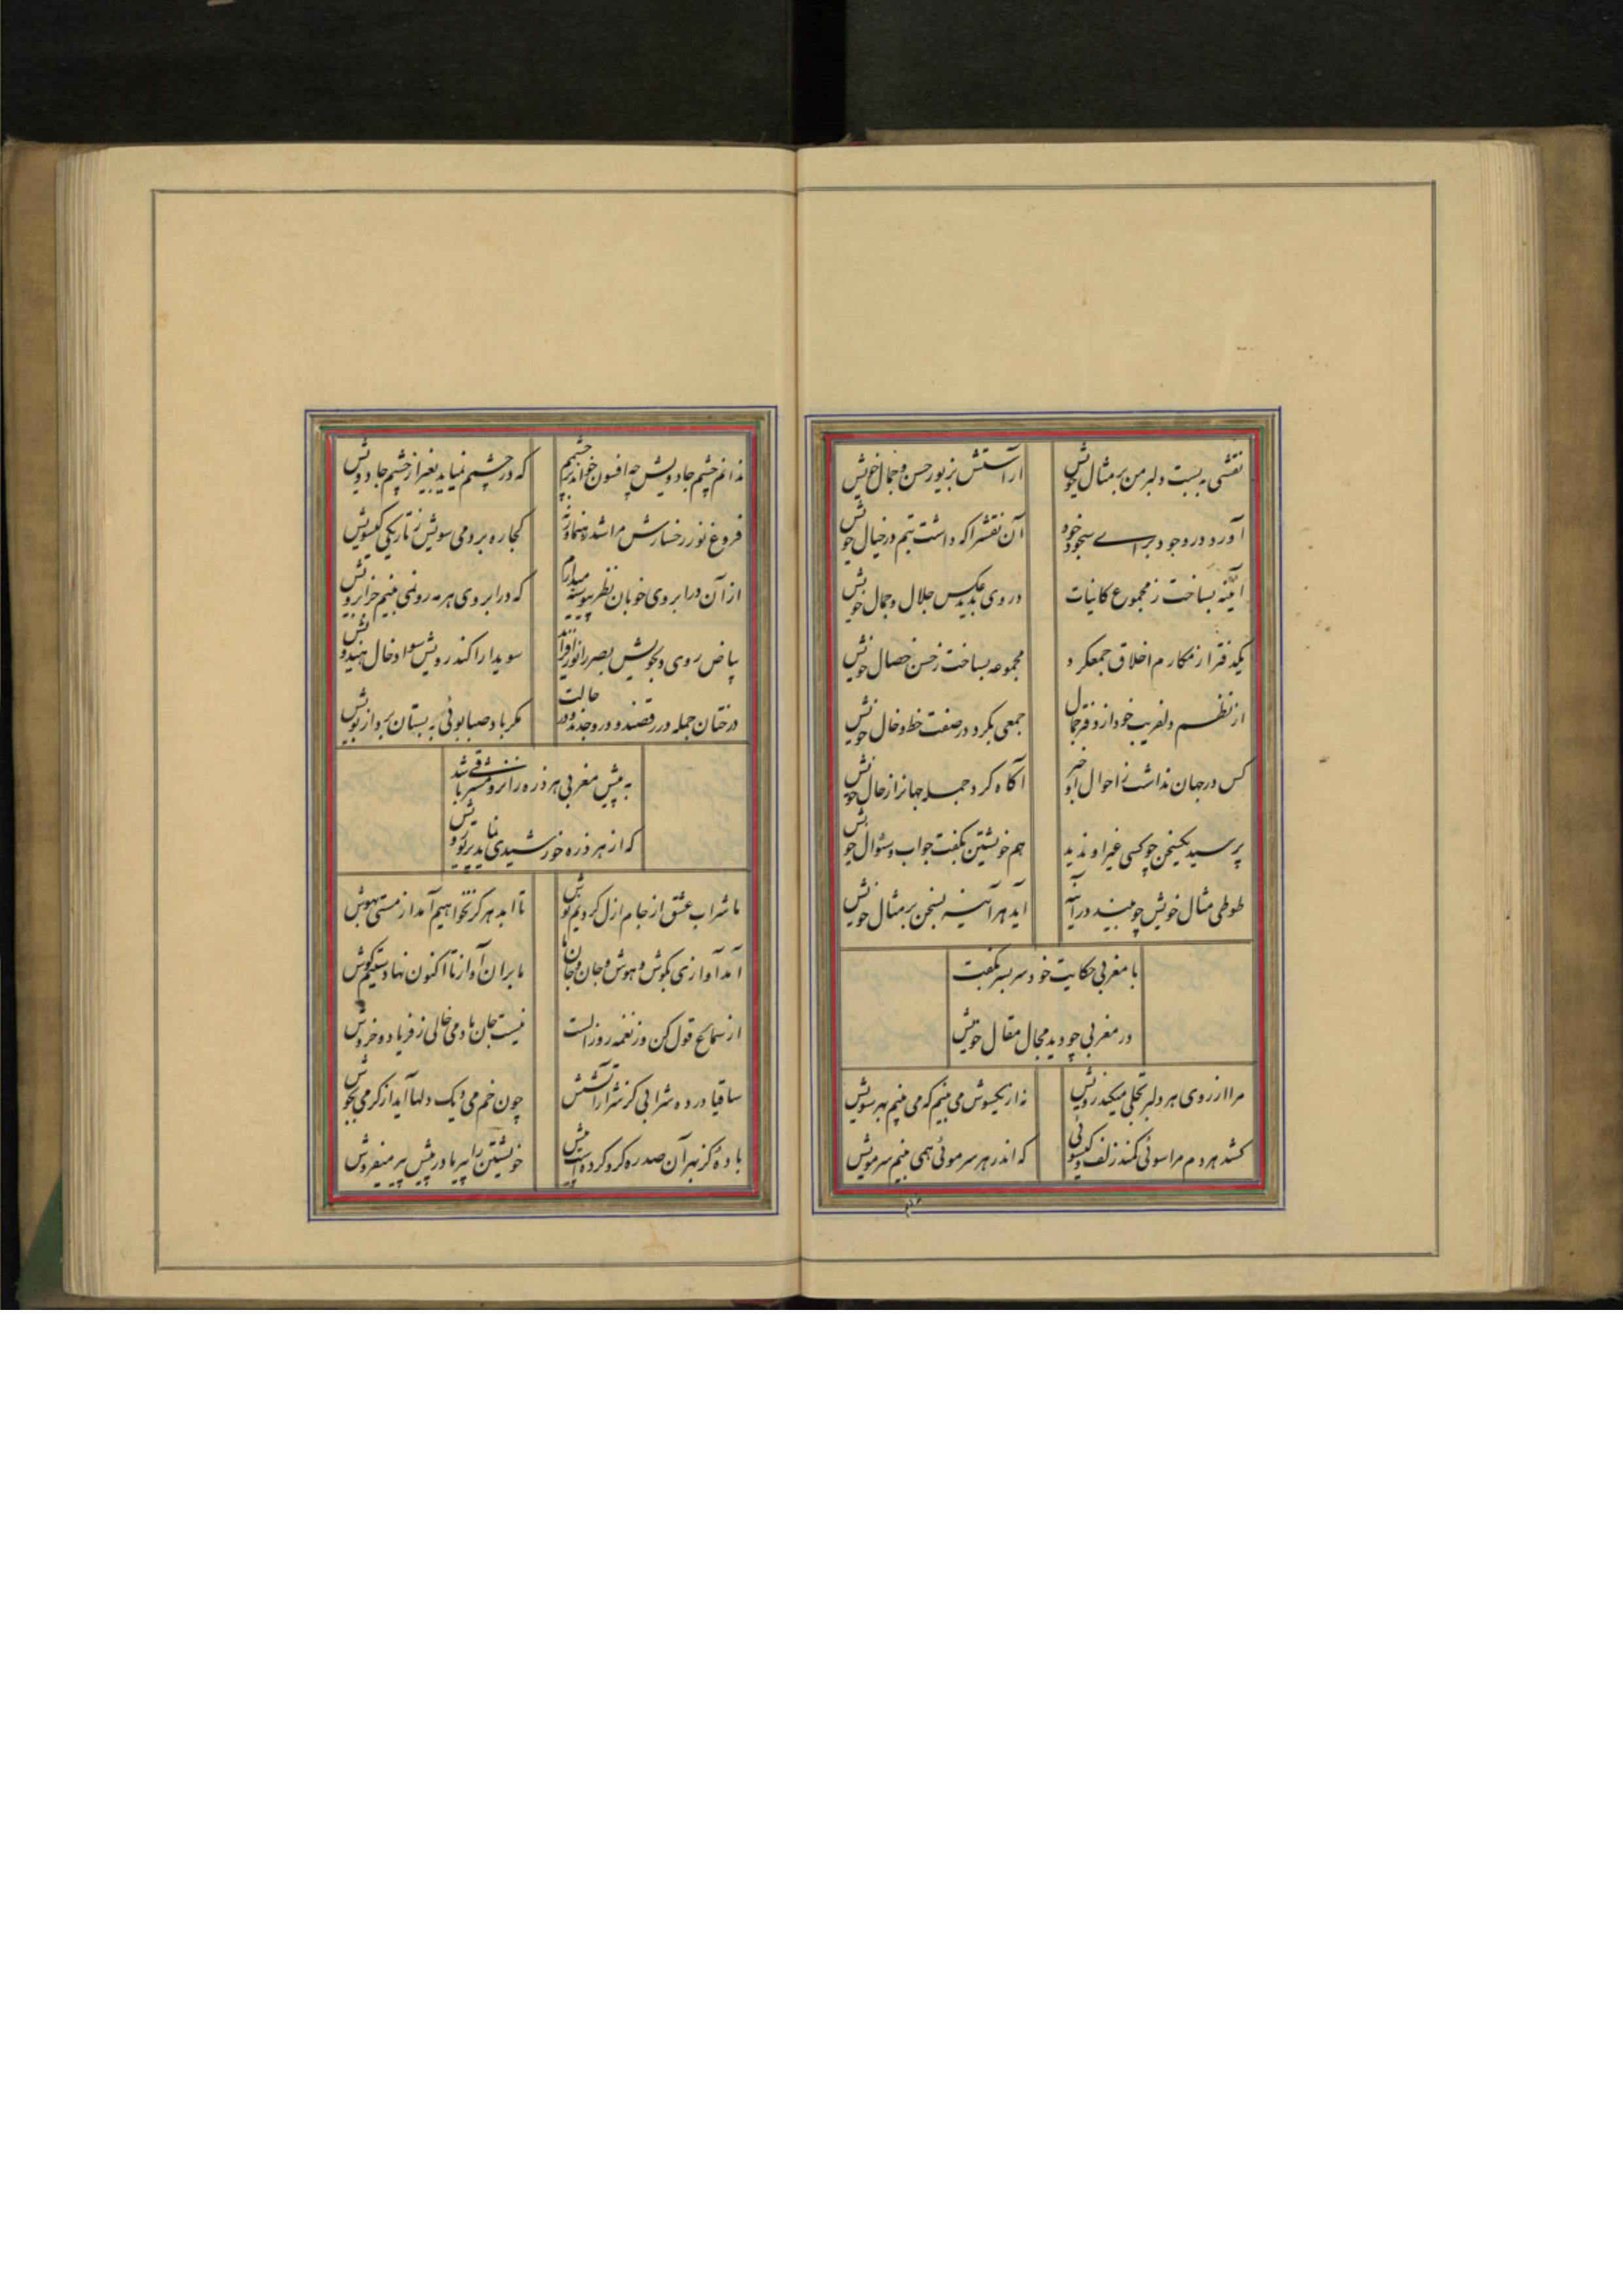 نقشی به بست دلبر من بر مثال خویش
آراستش بزیور حسن و جمال خویش
آورد در وجود برای سجود خود
آن نقشرا که داشت بتم در خیال خویش
آئینه بساخت ز مجموع کاینات
در وی بدید عکس جلال و جمال خویش
یکدفتر از مکارم اخلاق جمعکرد
مجموعه بساخت ز حسن خصال خویش
از نظم دلفریب خود از دفتر جمال
جمعی بکرد در صفت خط و خال خویش
کس در جهان نداشت ز احوال او خبر
آگاه کرد جمله جهانرا ز حال خویش
پرسید یکسخن چو کسی غیر او ندید
هم خویشتن بگفت جواب و سئوال خویش
طوطی مثال خویش چو بیند در آینه
آید هر آینه بسخن بر مثال خویش
با مغربی حکایت خود سر بسر بگفت
در مغربی چو دید مجال مقال خویش
مرا از روی هر دلبر تجلی میکند رویش
نه از یکسوش می بینم که می بینم بهر سویش
کشد هر دم مرا سوئی کمند زلف گیسوئی
که اندر هر سر موئی همی بینم سر مویش
ندانم چشم جادویش چه افسون خواند بر چشمم
که در چشمم نمیاید بغیر از چشم جادویش
فروغ نور رخسارش مرا شد رهنما ورنه
کجا ره بردمی سویش ز تاریکی گیسویش
از آن در ابروی خوبان نظر پیوسته میدارم
که در ابروی هر مه رو نمی بینم جز ابرویش
بیاض روی دلجویش بصر را نور افزاید
سویدا را کند روشن سواد خال هندویش
درختان جمله در رقصند و در وجدند و در حالت
مگر باد صبا بوئی به بستان برد از بویش
به پیش مغربی هر ذره زانرو مشرقی باشد
که از هر ذره خورشیدی نماید پرتو رویش
ما شراب عشق از جام ازل کردیم نوش
تا ابد هرگز نخواهیم آمد از مستی بهوش
آمد آوازی بگوش و هوش و جان و جان ما
ما بران آواز تا اکنون نهادستیم گوش
از سماع قول کن وز نغمه روز الست
نیست جان ما دمی خالی ز فریاد و خروش
ساقیا در ده شرابی کز شرار آتشش
چون خم می دیک دلها آید از گرمی بجوش
بادهٔ کز بهر آن صد ره گرو کرده است پیش
خویشتن را پیر ما در پیش پیر میفروش